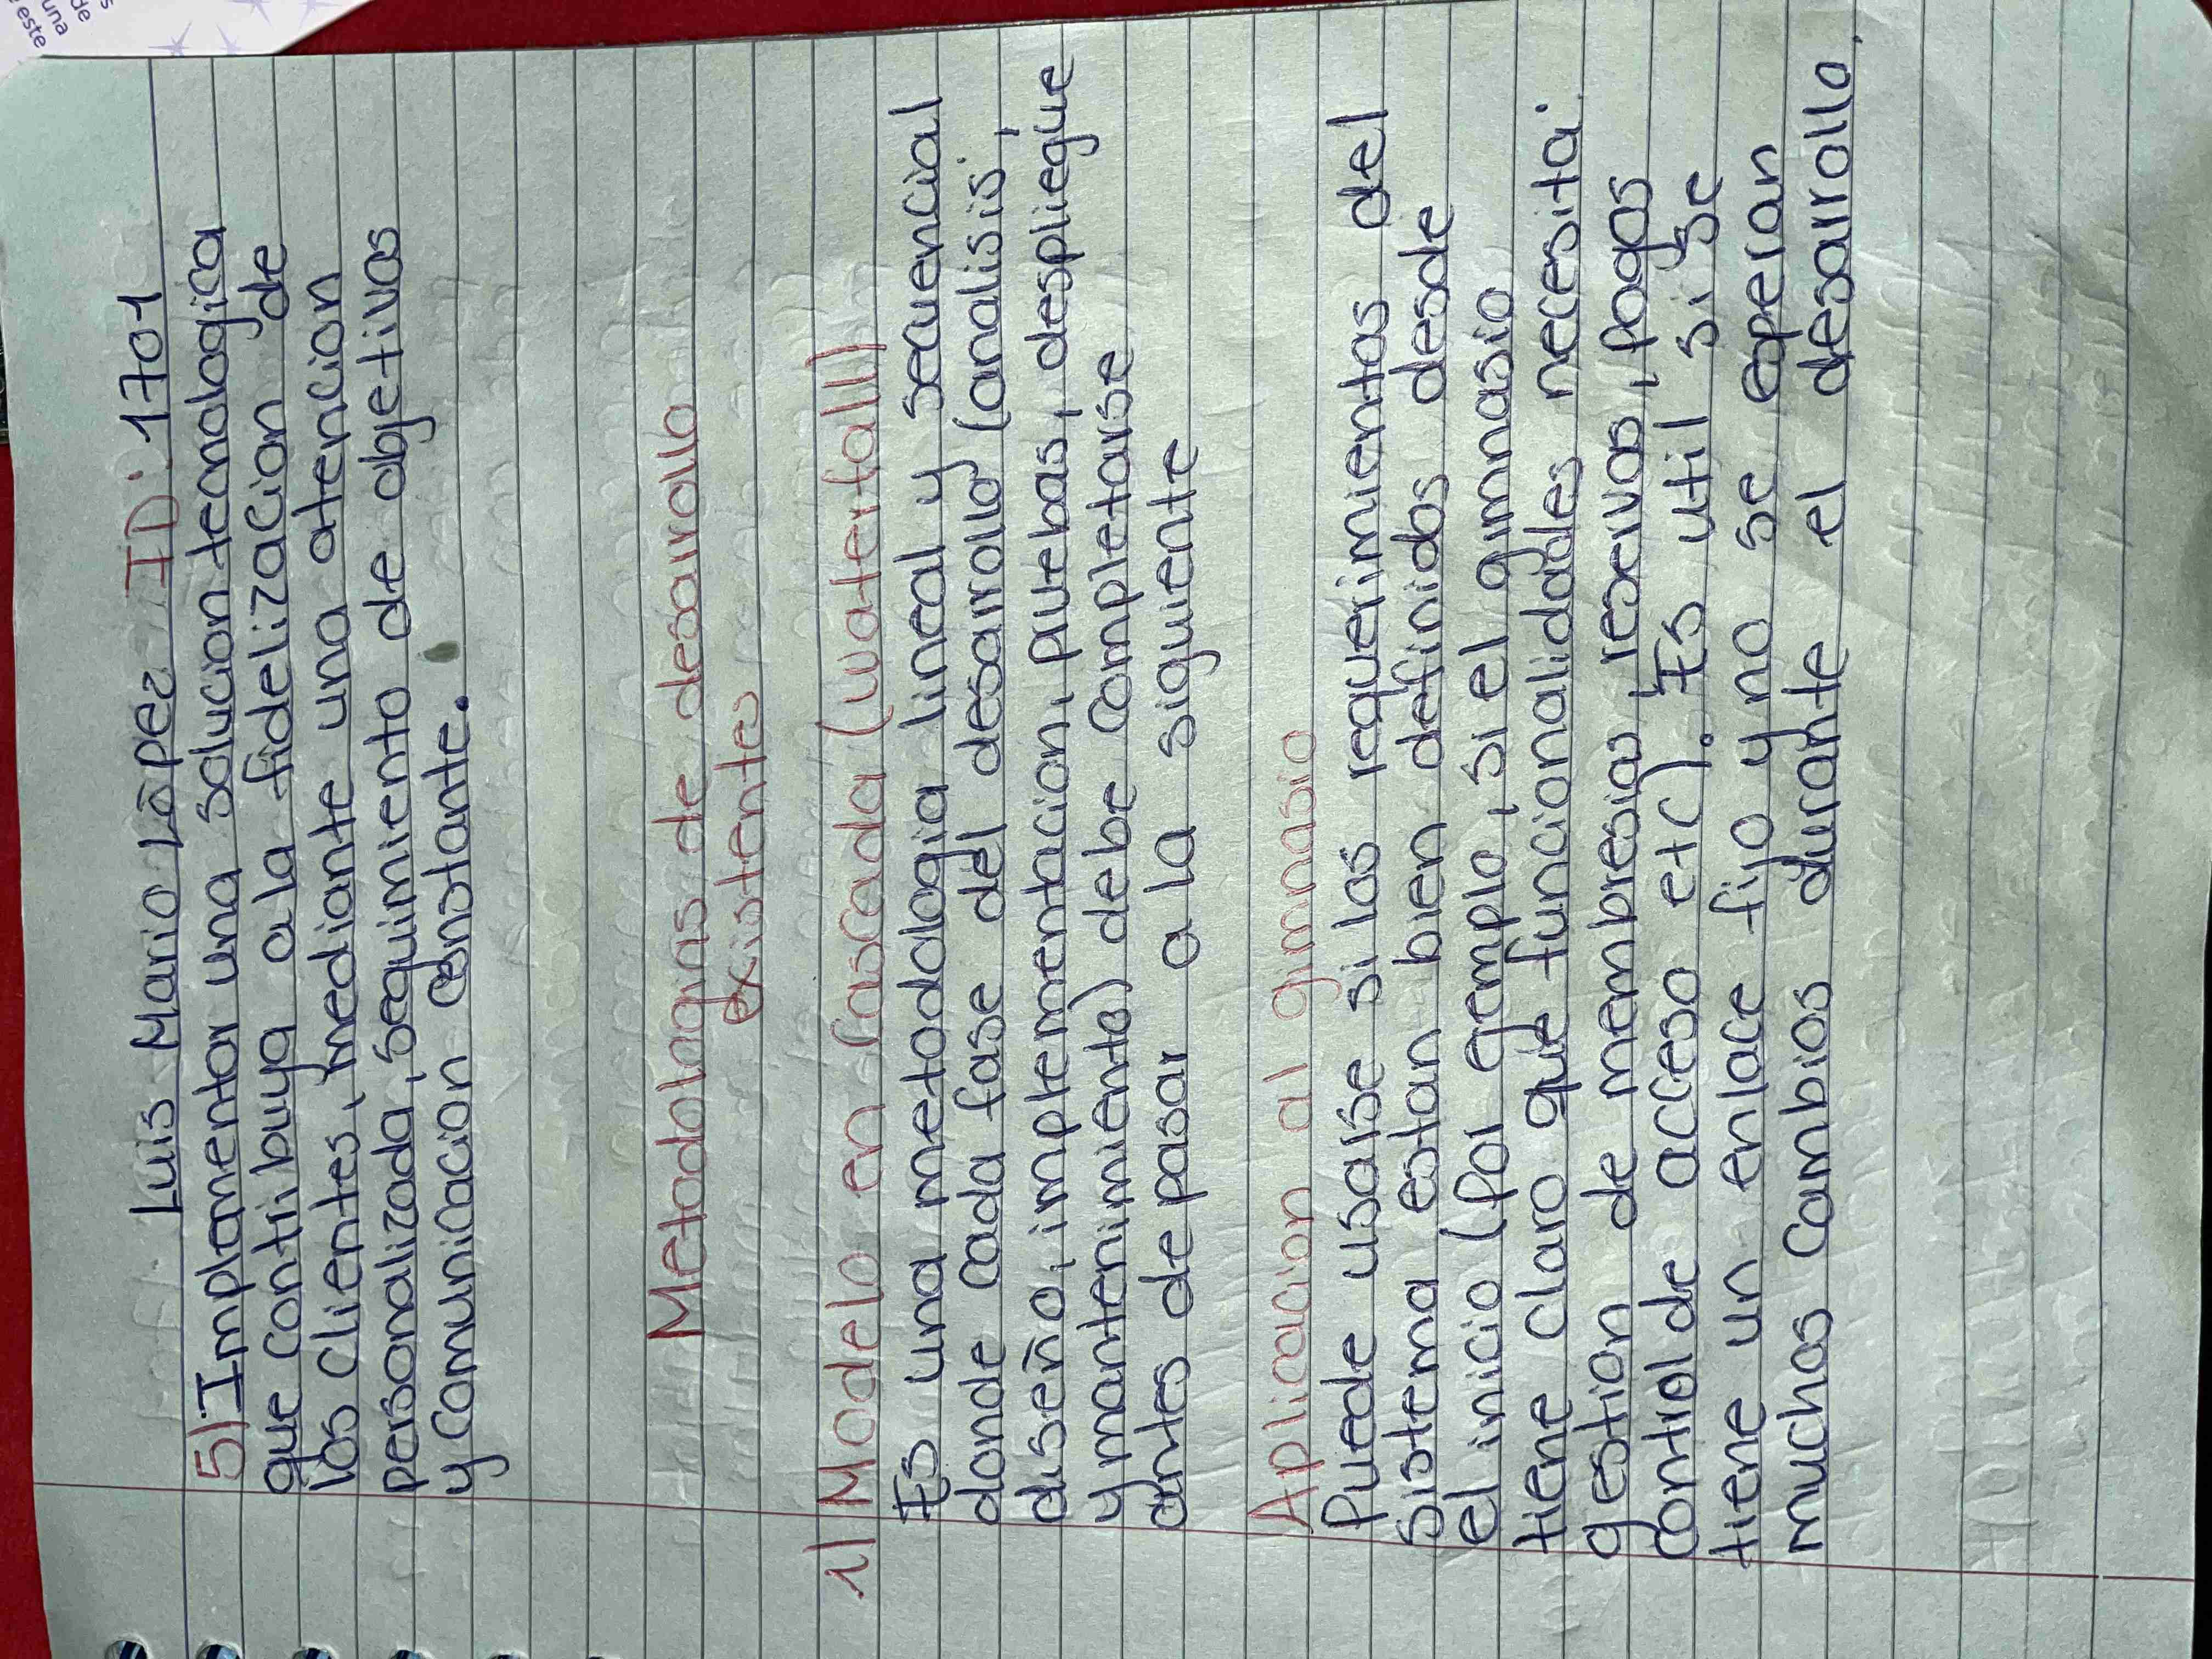 Luis Mario López ID: 1701
5) Implementar una solucion tecnologica
que contribuya a la fidelizacion de
los clientes, mediante una atencion
personalizada, seguimiento de objetivos
y comunicacion constante.
Metodologias de desarrollo
existentes
1) Modelo en Cascada (waterfall)
Es una metodologia lineal y secuencial
donde cada fase del desarrollo (analisis,
diseño, implementacion, pruebas, despliegue
y mantenimiento) debe completarse
antes de pasar a la siguiente
Aplicacion al gimnasio
Puede usarse si los requerimientos del
sistema estan bien definidos desde
el inicio (por ejemplo, si el gimnasio
tiene claro que funcionalidades necesita:
gestion de membresias, reservas, pagos
control de acceso etc). Es util si se
tiene un enlace fijo y no se esperan
muchos cambios durante el desarrollo.
una
de
este